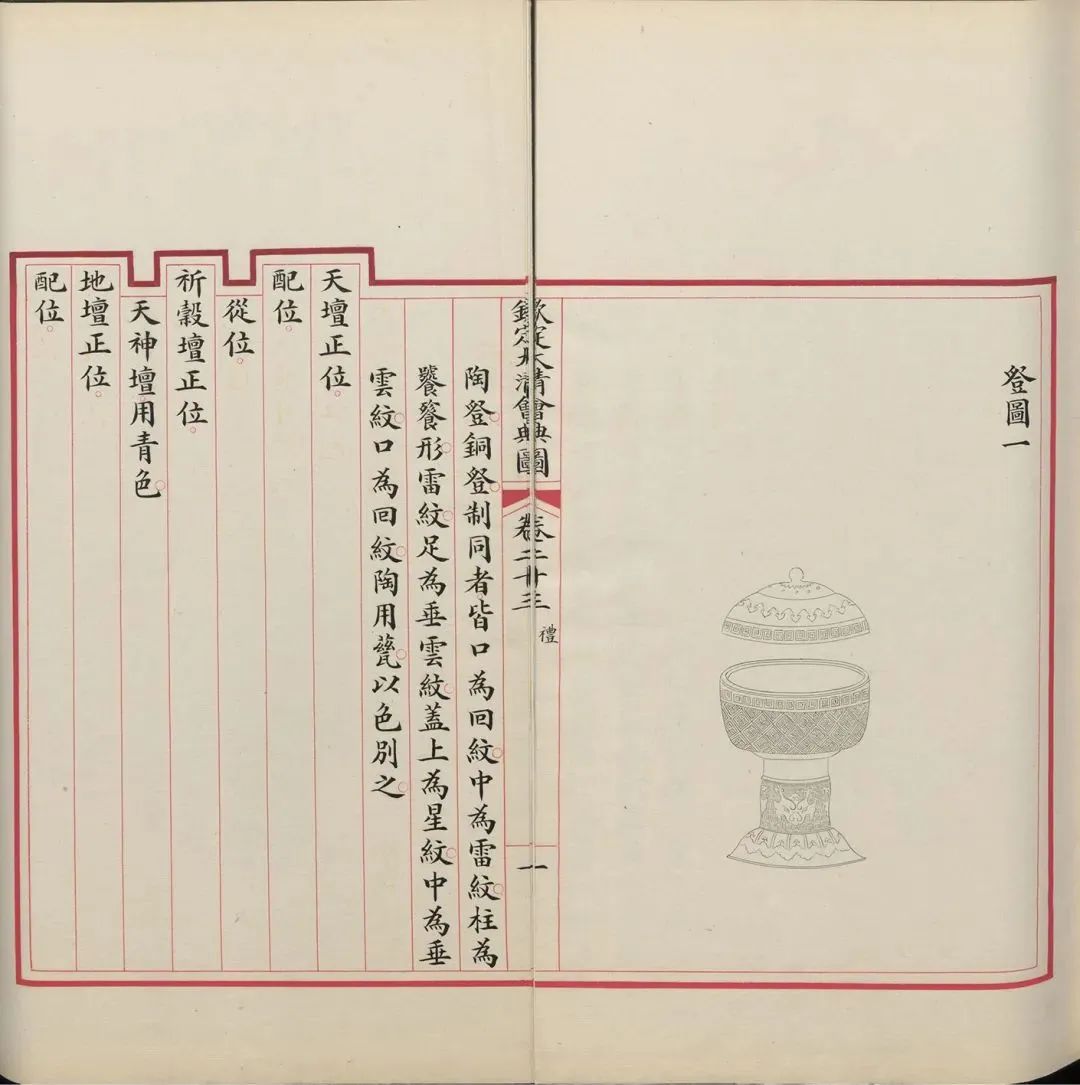 登圖一
欽定大清會典圖 卷二十三 禮 一
陶登銅登制同者皆口為回紋中為雷紋柱為
饕餮形雷紋足為垂雲紋蓋上為星紋中為垂
雲紋口為回紋陶用瓷以色別之
天壇正位
配位
從位
祈穀壇正位
天神壇用青色
地壇正位
配位